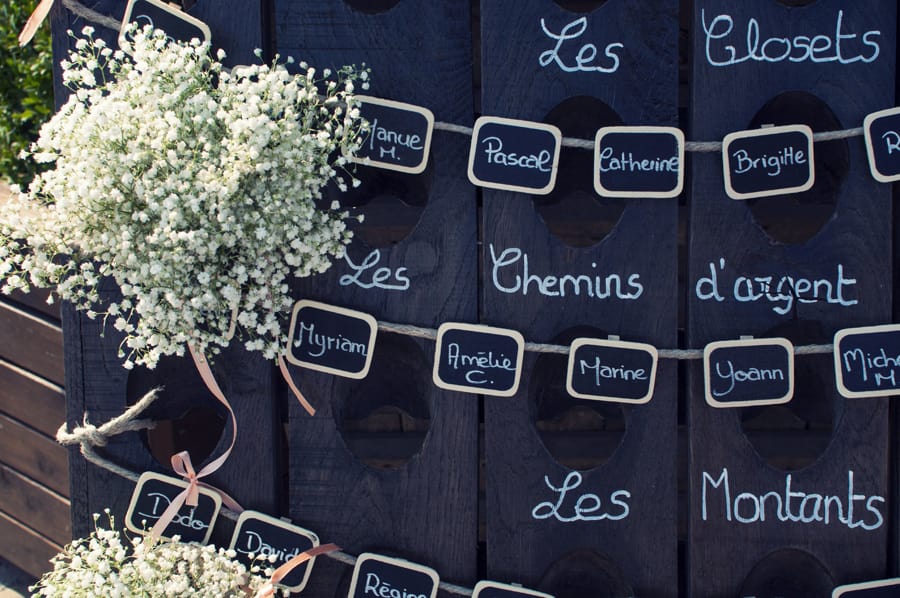 Les Closets
Manue
M.
Pascal
Catherine
Brigitte
Les Chemins d'argent
Myriam
Amélie
C.
Marine
Yoann
Miche
M
Les Montants
Dodo
David
Régine